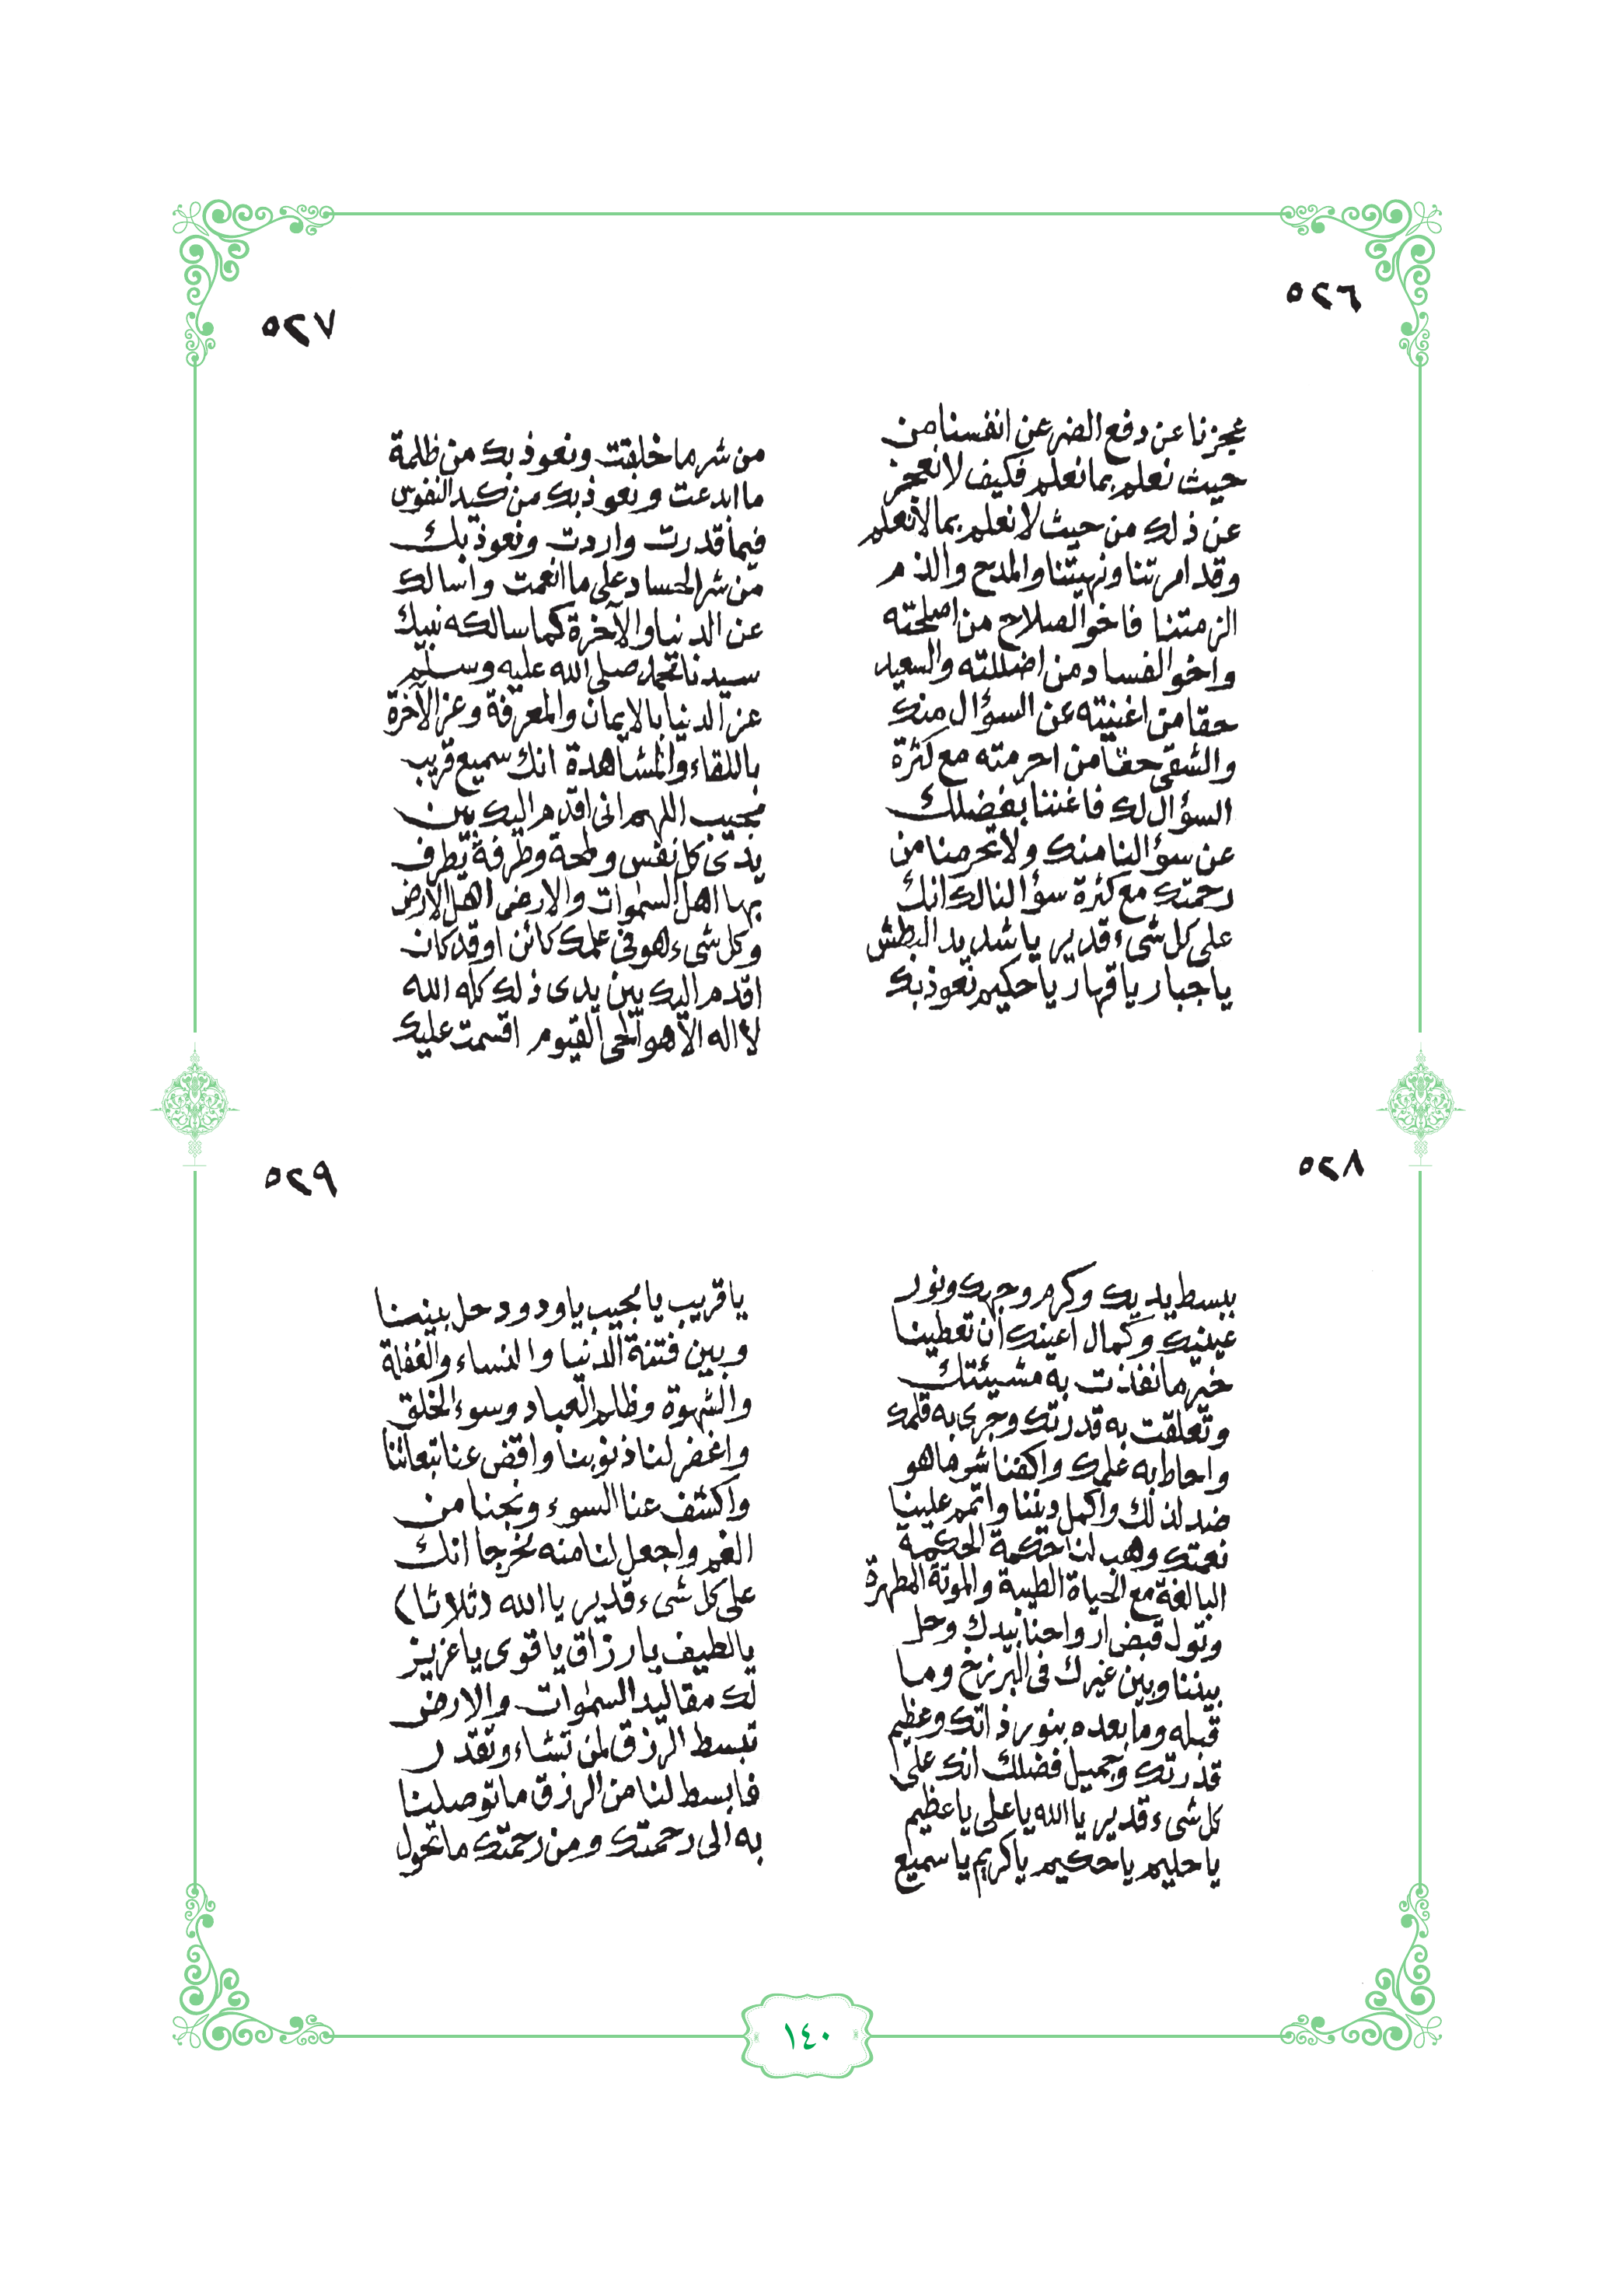 ٥٢٦
عجزنا عن دفع الضر عن انفسنا من
حيث نعلم بما نعلم فكيف لا نعجز
عن ذلك من حيث لا نعلم بما لا نعلم
وقد امرتنا ونهيتنا والمدح والذم
الزمتنا فاخو الصلاح من اصلحته
واخو الفساد من اضللته والسعيد
حقا من اغنيته عن السؤال منك
والشقى حقا من احرمته مع كثرة
السؤال لك فاغننا بفضلك
عن سؤالنا منك ولا تحرمنا من
رحمتك مع كثرة سؤالنا لك انك
على كل شىء قدير يا شديد البطش
يا جبار يا قهار يا حكيم نعوذ بك
٥٢٧
من شر ما خلقت ونعوذ بك من ظلمة
ما ابدعت ونعوذ بك من كيد النفوس
فيما قدرت واردت ونعوذ بك
من شر الحساد على ما انعمت واسالك
عن الدنيا والآخرة كما سالكه نبيك
سيدنا محمد صلى الله عليه وسلم
عز الدنيا بالايمان والمعرفة وعز الآخرة
باللقاء والمشاهدة انك سميع قريب
مجيب اللهم انى اقدم اليك بين
يدى كل نفس ولمحة وطرفة يطرف
بها اهل السموات والارض اهل الارض
وكل شىء هو فى علمك كائن او قد كان
اقدم اليك بين يدى ذلك كله الله
لا اله الا هو الحى القيوم اقسمت عليك
٥٢٨
ببسط يديك وكرم وجهك ونور
عينيك وكمال اعينك ان تعطينا
خير ما نفذت به مشيئتك
وتعلقت به قدرتك وجرى به قلمك
واحاط به علمك واكفنا شر ما هو
ضد لذلك واكمل ديننا واتمم علينا
نعمتك وهب لنا حكمة الحكمة
البالغة مع الحياة الطيبة والموتة المطهرة
وتول قبض ارواحنا بيدك وحل
بيننا وبين غيرك فى البرزخ وما
قبله وما بعده بنور ذاتك وعظيم
قدرتك وجميل فضلك انك على
كل شىء قدير يا الله يا على يا عظيم
يا حليم يا حكيم يا كريم يا سميع
٥٢٩
يا قريب يا مجيب يا ودود حل بيننا
وبين فتنة الدنيا والنساء والغفلة
والشهوة وظلم العباد وسوء الخلق
واغفر لنا ذنوبنا واقض عنا تبعاتنا
واكشف عنا السوء ونجنا من
الغم واجعل لنا منه مخرجا انك
على كل شىء قدير يا الله (ثلاثا)
يا لطيف يا رزاق يا قوى يا عزيز
لك مقاليد السموات والارض
تبسط الرزق لمن تشاء وتقدر
فابسط لنا من الرزق ما توصلنا
به الى رحمتك ومن رحمتك ما تحول
١٤٠